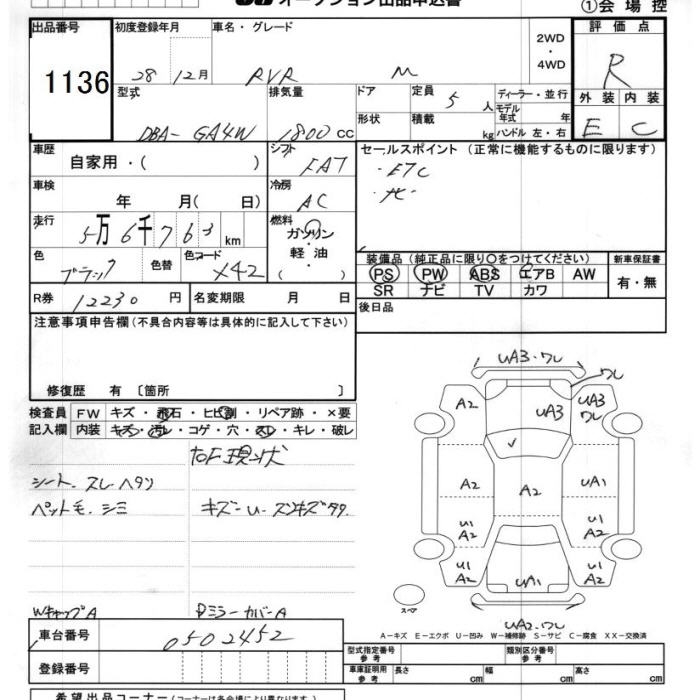 オークション出品申込書
①会場控
出品番号 初度登録年月 車名・グレード 2WD ・ 4WD 評価点
1136 28 12月 RVR M R
型式 排気量 ドア 定員 5 人 ディーラー・並行 外装 内装
形状 積載 kg モデル年式 年 ハンドル 左・右
DBA- GA4W 1800 CC E C
車歴 自家用・( ) シフト FAT セールスポイント (正常に機能するものに限ります)
・ETC
車検 年 月( 日) 冷房 AC
走行 5万6千763 km 燃料 ガソリン 軽油 ( )
色 ブラック 色替 色コード X42
装備品 (純正品に限り○をつけてください) 新車保証書
PS PW ABS エアB AW 有・無
SR ナビ TV カワ
R券 12230 円 名変期限 月 日 後日品
注意事項申告欄(不具合内容等は具体的に記入して下さい)
修復歴 有 〔箇所 〕
検査員 FW キズ・飛石・ヒビ割・リペア跡・×要
記入欄 内装 キズ・汚レ・コゲ・穴・スレ・キレ・破レ
右F現状
シート、スレヘタリ
ペット毛、シミ
キズ一U
WキャップA
DミラーカバーA
UA3・ワレ
ワレ
A2 UA3 ワレ
A2 A2 UA1
U1 A2 U1 A2
U1 A2 UA1 U1 A2
スペア
UA2・ワレ
A-キズ E-エクボ U-凹み W-補修跡 S-サビ C-腐食 XX-交換済
車台番号 0502452
登録番号
型式指定番号 参考 類別区分番号 参考
車庫証明用 参考 長さ cm 幅 cm 高さ cm
希望出品コーナー(コーナーは各会場により異なります)